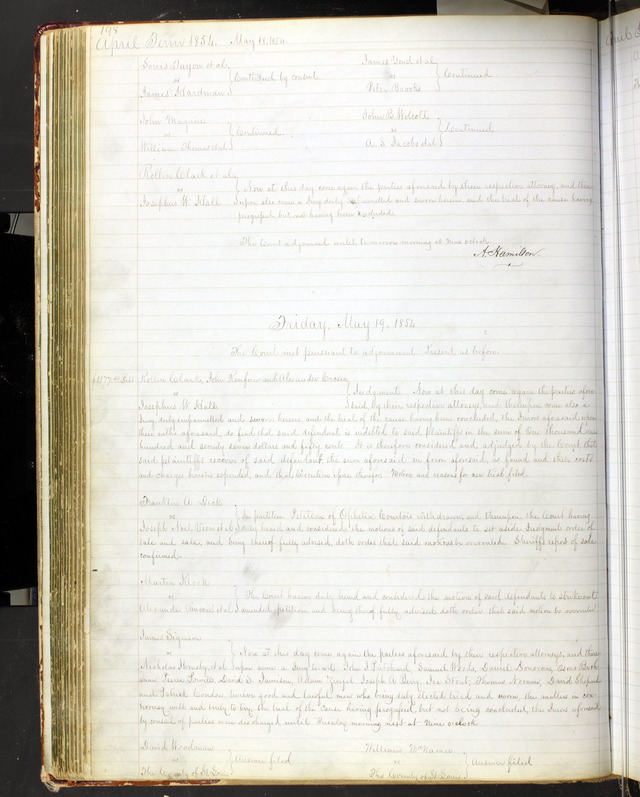 198
April Term 1854. May 18, 1854
Louis
vs } Continued by consent
James Hardman
James et al
vs } Continued
Peter Brooks
John Maguire
vs } Continued
William Thomas et al
John B Wolcott
vs } Continued
A. S. Jacobs et al
Rollin Clark et al
vs } Now at this day come again the parties aforesaid by their respective attorneys, and there
Josephus W. Hall upon also came a Jury duly empannelled and sworn herein, and the trial of the cause having
progressed but not having been concluded.
The Court adjourned until to morrow morning at nine oclock
A. Hamilton
Friday, May 19, 1854
The Court met pursuant to adjournment Present as before.
Rollin Clark, John Renfrow and Alexander
vs } Judgment Now at this day come again the parties afore
Josephus W. Hall said by their respective attorneys, and thereupon came also a
Jury duly empannelled and sworn herein, and the trial of the cause having been concluded, the Jurors aforesaid upon
their oaths aforesaid do find that said defendant is indebted to said Plaintiffs in the sum of One thousand
hundred and seventy seven dollars and fifty cents. It is therefore considered and adjudged by the Court that
said plaintiffs recover of said defendant the sum aforesaid in form aforesaid, as found and their costs
and charges herein expended, and that Execution issue therefor. Motion and reasons for new trial filed.
Franklin A. Dick
vs } In partition Petition of Ophelia Courtois withdrawn and thereupon the Court having
Joseph et al duly heard and considered the motions of said defendants to set aside Judgment order of
sale and sale, and being thereof fully advised, doth order that said motions be overruled. Sheriffs report of sale
confirmed.
Martin Klock
vs } The Court having duly heard and considered the motion of said defendants to strike out
Alexander et al amended petition and being thereof fully advised doth order that said motion be overruled
James
vs } Now at this day come again the parties aforesaid by their respective attorneys, and there
Nicholas et al upon came a Jury to wit John Samuel David Donovan,
David W. Jamison, Adam Joseph A. Thomas David
and Patrick Condon twelve good and lawful men who being duly elected tried and sworn, the matters in con-
troversy well and truly to try, the trial of the Cause having progressed, but not being concluded, the Jurors aforesaid
by consent of parties were discharged until Tuesday morning next at Nine oclock
David Woodman
vs } Answer filed
The County of St Louis
William McNamee
vs } Answer filed
The County of St Louis